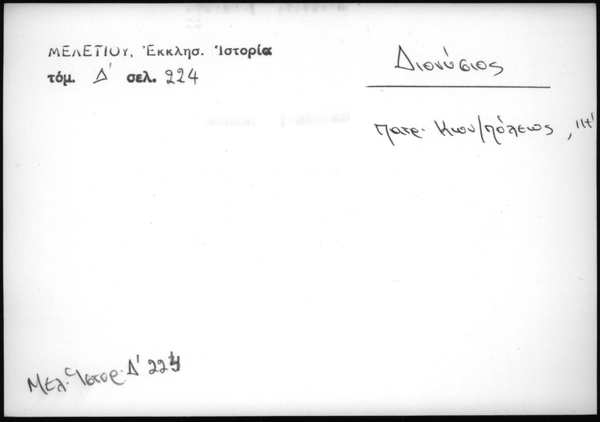 ΜΕΛΕΤΙΟΥ, Ἐκκλησ. Ἱστορία
τόμ. Δ' σελ. 224
Διονύσιος
πατρ. Κων/πόλεως,
Μελ. Ἱστορ. Δ' 224